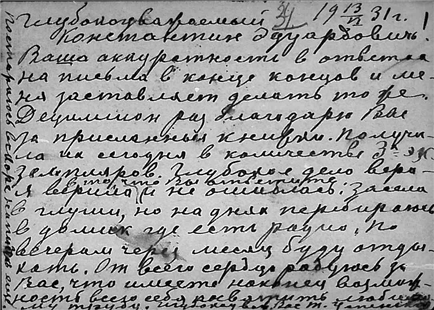 Глубокоуважаемый 19 13/II 31 г.
Константин Эдуардович!
Ваша аккуратность в ответах
на письма в конце концов и ме-
ня заставляет делать то же.
Дециллион раз благодарю Вас
за присланныя книги. Получи-
ла их сегодня в количестве 3-эк
земпляров. Глубокое дело верю
я верила и не ошиблась: засела
в глуши, но на днях перебираюсь
в домик где есть радио, по
вечерам через месяц буду отды-
хать. От всего сердца радуюсь за
Вас, что имеете наконец возмож-
ность всего себя посвятить любимо
му труду.
Постараюсь вскоре написать еще.